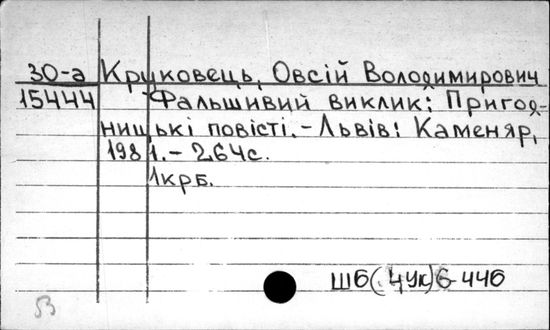 30-а Круковець, Овсій Володимирович
15444 Фальшивий виклик: Пригод-
ницькі повісті.-Львів: Каменяр,
1981.-264с.
1крб.
Ш6(4Ук)6-446
53